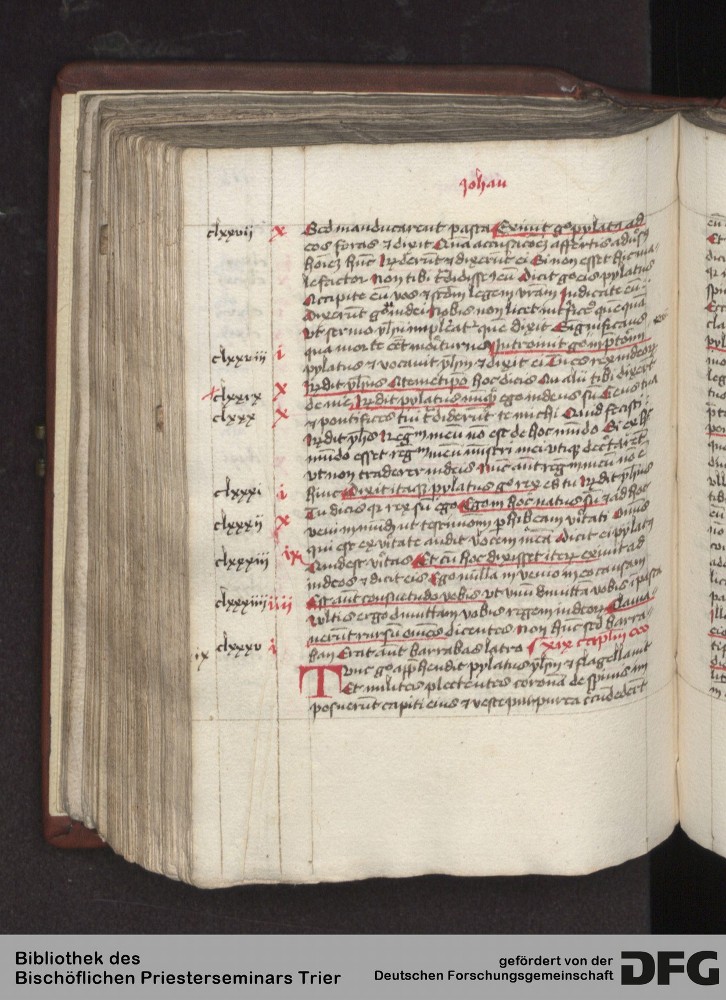 Johan
clxxvii x Sed manducarent pasca Exivit go pylatus ad
eos foras et dixit Qua accusacoez affertis adusq
hoiez hunc Rnderut et dixerut ei Si non esset hic ma-
lefactor non tibi tdidissem eu Dicit go eis pylatus
Accipite eu vos et scdm legem vram Judicate eu
Dixerut g iudei Nobis non licet interfice quequa
vt sermo yhu impleat que dixit Significans
clxxviii i qua morte eet moiturus Introivit go in ptoriu
pylatus et vocavit yhm et dixit ei Tu es rex iudeor
clxxix x Rndit yhus A temetipo hoc dicis An alii tibi dixert
clxxx x de me Rndit pylatus nuq ego iudeus su Gens tua
et pontifices tui tdiderut te michi Quid fecisti
Rndit yhs Regnu meu no est de hoc mundo Si ex hoc
mudo esset regnu meu mistri mei vtiq dectaret
vt non traderer iudeis Nuc aut regnu meu no e
clxxxi i hinc Dixit itaq pylatus go rex es tu Rndit yhus
Tu dicis qr rex su ego Ego in hoc natus su et ad hoc
clxxxii x veni in mudu ut testimoniu phibeam vitati Omis
qui est ex vitate audit vocem mea Dicit ei pylatus
clxxxiii ix Quid est vitas Et cu hoc dixisset iteru exivit ad
iudeos et dicit eis Ego nulla invenio in eo causam
clxxxiiii iiii Est aut consuetudo vobis ut vnu dimitta vobis i pasca
Vultis ergo dimittam vobis regem iudeor Clama-
verut rursu omes dicentes Non hunc sed barra-
clxxxv i ban Erat aut barrabas latro xix caplm
Tunc go apphendit pylatus yhm et flagellavit
Et milites plectentes corona de spinis im
posuerut capiti eius et veste purpurea circudedert
Bibliothek des
Bischöflichen Priesterseminars Trier
gefördert von der
Deutschen Forschungsgemeinschaft
DFG